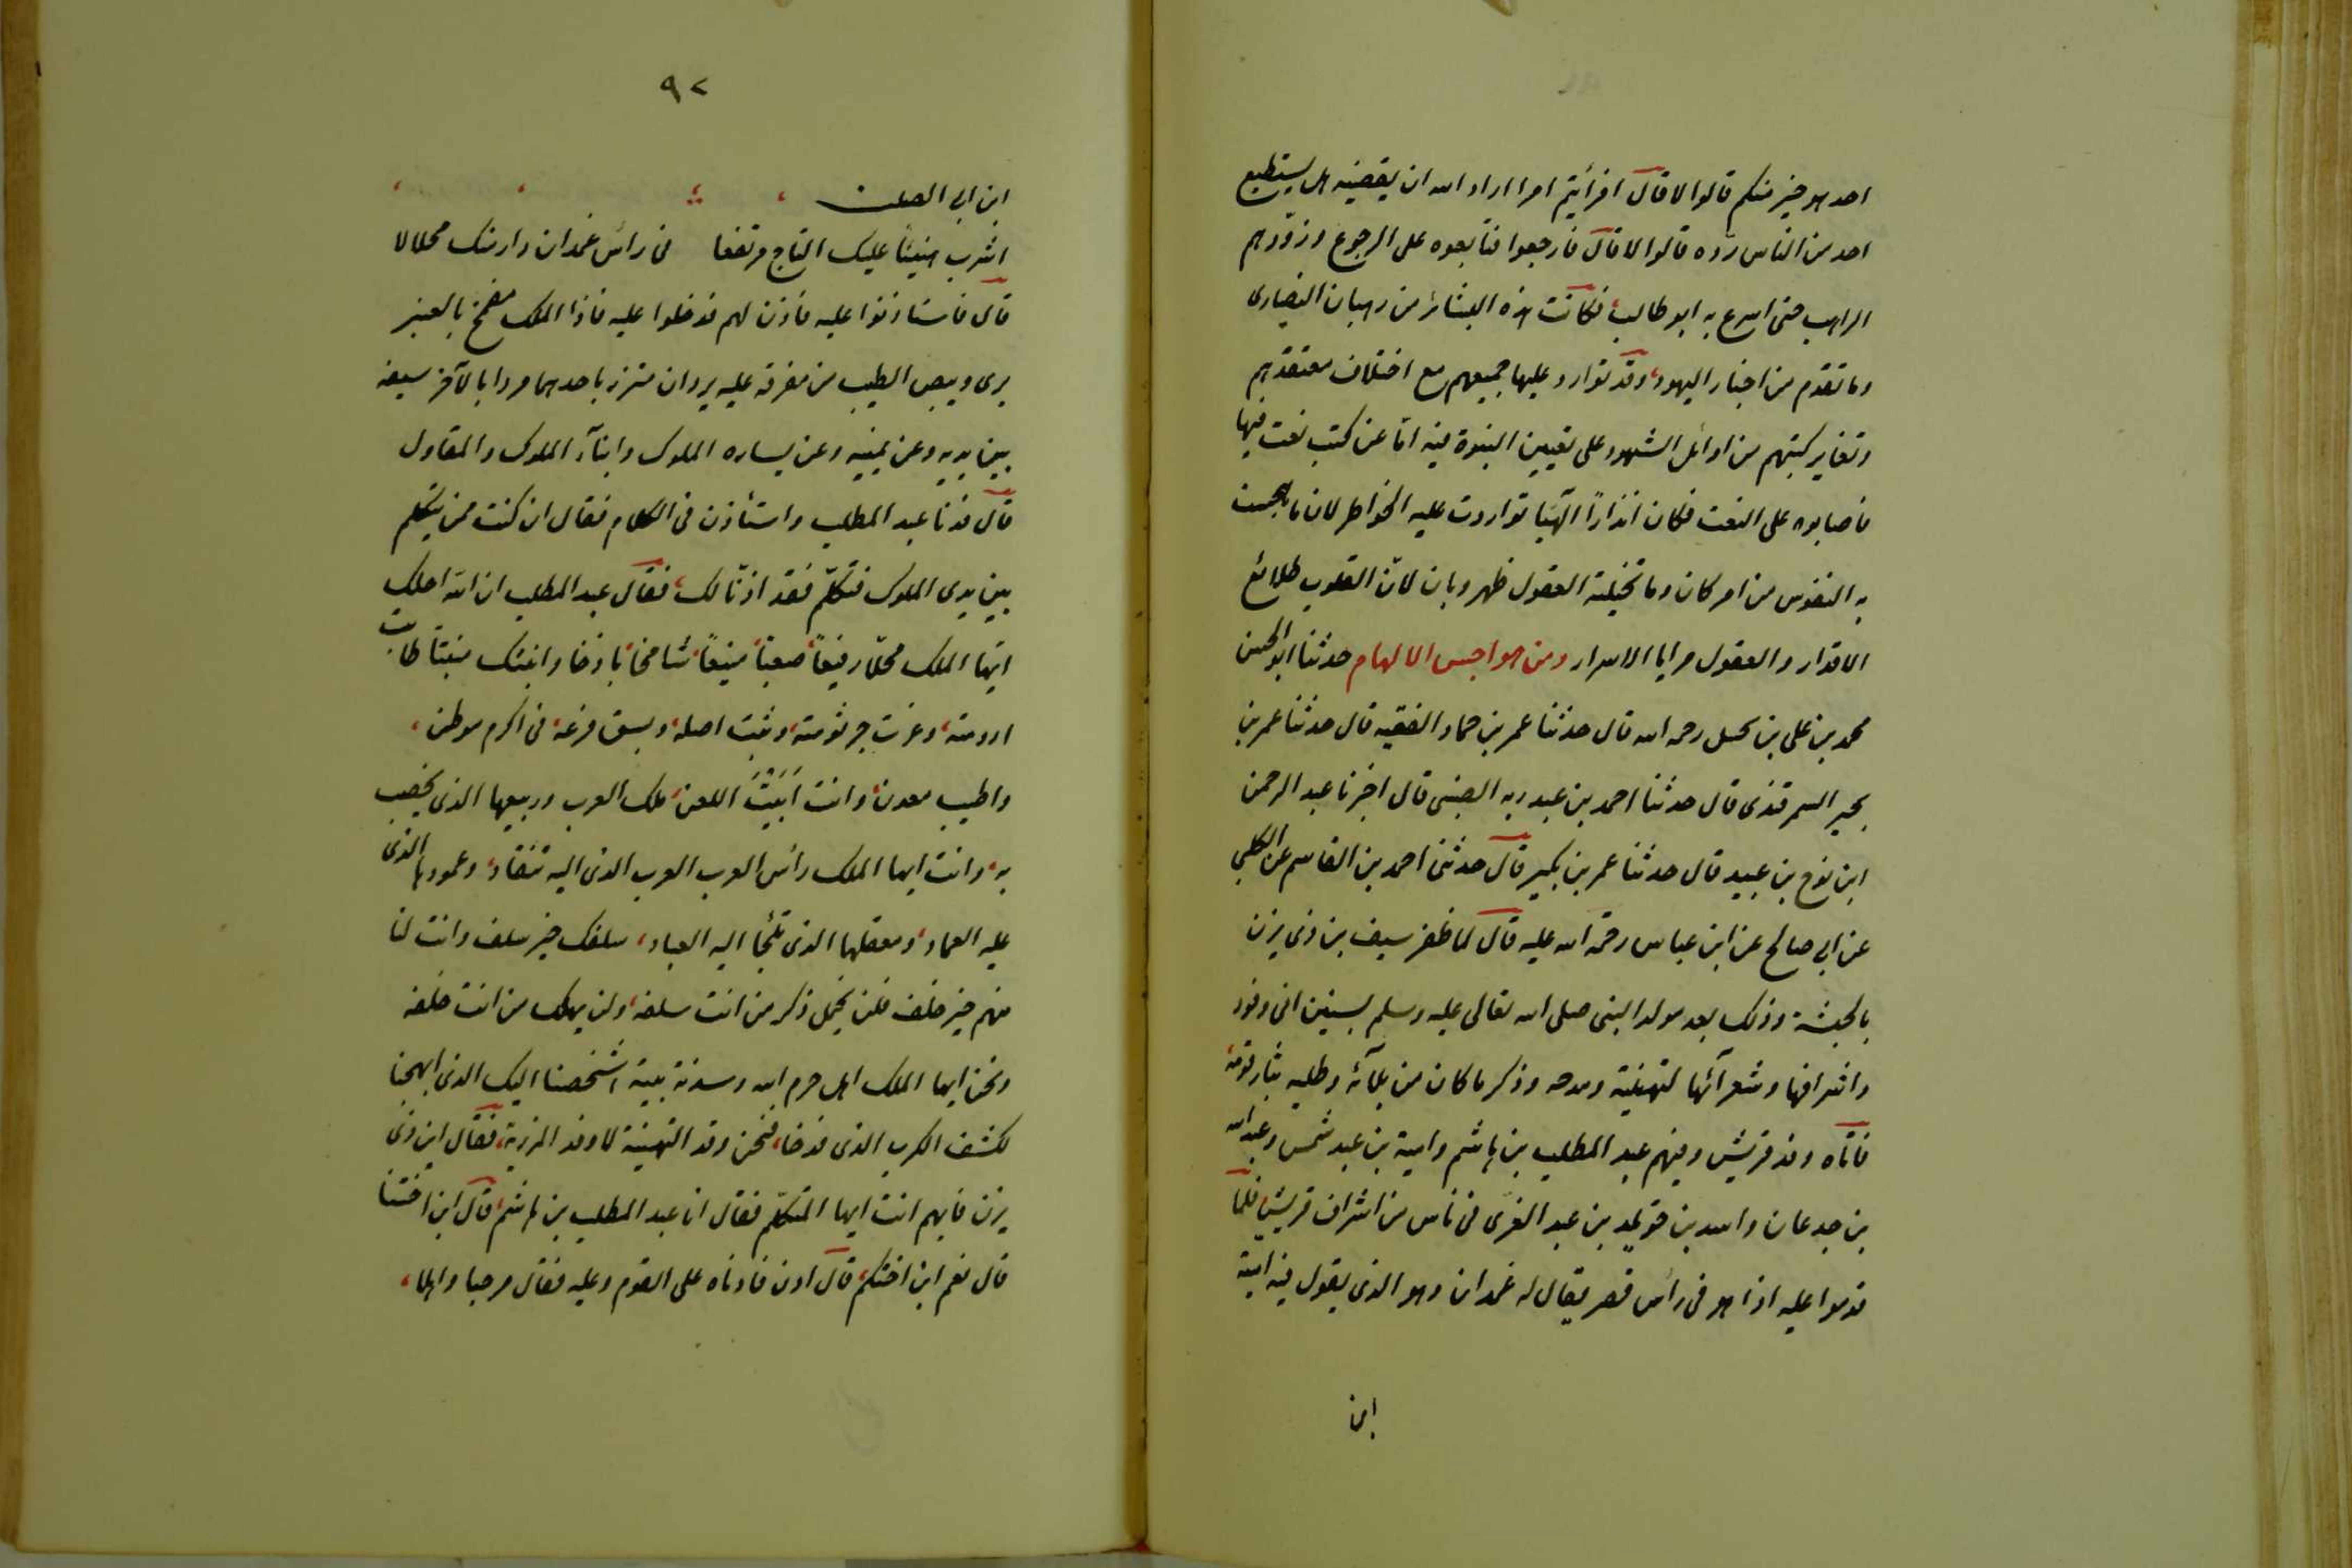 احد هو خير منكم قالوا لا قال افرأيتم امرا اراد الله ان يقضيه هل يستطيع
احد من الناس ردّه قالوا لا قال فارجعوا فتابعوه على الرجوع وزوّدهم
الراهب حتى اسرع به ابو طالب، فكانت هذه البشائر من رهبان النصارى
وما تقدم من احبار اليهود، وقد توارد عليها جميعهم مع اختلاف معتقدهم
وتغاير كتبهم من اوائل الشهود على تعيين النبوة فيه امّا عن كتب نعت فيها
فاصابوه على النعت فكان انذارًا الٓهيّا تواردت عليه الخواطر لان ما هجست
به النفوس من امر كان وما تخيلته العقول ظهر وبان لانّ القلوب طلائع
الاقدار والعقول مرايا الاسرار ومن هواجس الالهام حدثنا ابو الحسن
محمد بن على بن سهل رحمه الله قال حدثنا عمر بن حماد الفقيه قال حدثنا عمر بن
بجير السمرقندى قال حدثنا احمد بن عبد ربه الضبى قال اخبرنا عبد الرحمن
ابن نوح بن عبيد قال حدثنا عمر بن بكير قال حدثنى احمد بن القاسم عن الكلبي
عن ابى صالح عن ابن عباس رحمة الله عليه قال لما ظفر سيف بن ذى يزن
بالحبشة وذلك بعد مولد النبى صلى الله تعالى عليه وسلم بسنين اتى وفود
واشرافها وشعرآئها لتهنئته ومدحه وذكر ما كان من بلآئه وطلبه بثار قومه،
فاتاه وفد قريش وفيهم عبد المطلب بن هاشم وامية بن عبد شمس وعبد الله
بن جدعان واسد بن خويلد بن عبد العزى فى ناس من اشراف قريش فلمّا
قدموا عليه اذا هو فى رأس قصر يقال له غمدان وهو الذى يقول فيه امية
ابن
٩٢
ابن ابى الصلت
اشرب هنيئًا عليك التاج مرتفعا فى رأس غمدان دار منك محلالا
قال فاستاذنوا عليه فاذن لهم فدخلوا عليه فاذا الملك مضمخ بالعنبر
يرى وبيص الطيب من مفرقه عليه بردان متزر باحدهما مردا بالآخر سيفه
بين يديه وعن يمينه وعن يساره الملوك وابنآء الملوك والمقاول
قال فدنا عبد المطلب واستأذن فى الكلام فقال ان كنت ممن يتكلم
بين يدى الملوك فتكلّم فقد اذنّا لك، فقال عبد المطلب ان الله احلك
ايّها الملك محلّا رفيعًا، صعبًا، منيعًا، شامخًا، باذخا، وانبتك منبتًا طابت
ارومته، وعزت جرثومته، وثبت اصله، وبسق فرعه، فى اكرم موطن،
واطيب معدن، وانت اَبَيْتَ اللعن، ملك العرب وربيعها الذى يخصب
به، وانت ايها الملك رأس العرب العرب الذى اليه تنقاد، وعمودها الذى
عليه العماد، ومعقلها الذى تلجأ اليه العباد، سلفك خير سلف وانت لنا
منهم خير خلف فلن يخمل ذكر من انت سلفه، ولن يهلك من انت خلفه
ونحن ايها الملك اهل حرم الله وسدنة بيته اشخصنا اليك الذى ابهجنا
لكشف الكرب الذى فدحنا، فنحن وفد التهنية لا وفد المرزية، فقال ابن ذى
يزن فايهم انت ايها المتكلّم فقال انا عبد المطلب بن هاشم، قال ابن اختنا
قال نعم ابن اختكم، قال ادن فادناه على القوم وعليه فقال مرحبا واهلا،